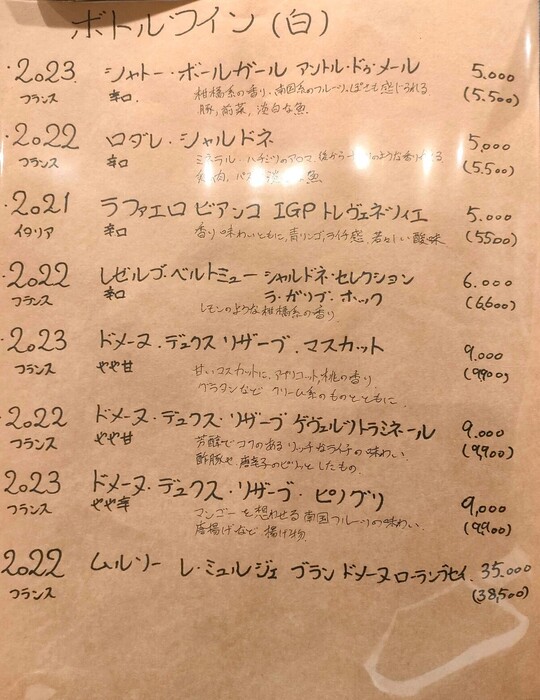 ボトルワイン(白)
・2023 シャトー・ボールガール アントル・ドゥ・メール 5.000
フランス 辛口 柑橘系の香り、南国系のフルーツっぽさも感じられる (5.500)
豚,前菜,淡白な魚
・2022 ロダレ・シャルドネ 5,000
フランス 辛口 ミネラル・ハチミツのアロマ (5.500)
魚
・2021 ラファエロ ビアンコ IGP トレヴェネツィエ 5.000
イタリア 辛口 香り味わいともに,青リンゴ,ライチ感,若々しい酸味 (5500)
・2022 レゼルブ・ベルトミュー シャルドネ・セレクション 6.000
フランス 辛口 ラ・ガリブ・ホック (6600)
レモンのような柑橘系の香り
・2023 ドメーヌ・デュクス リザーブ・マスカット 9,000
フランス やや甘 甘いマスカットに,アプリコット,桃の香り (9,900)
グラタンなど クリーム系のものとともに
・2022 ドメーヌ・デュクス・リザーブ ゲヴェルツトラミネール 9.000
フランス やや甘 芳醇でコクのあるリッチなライチの味わい (9,900)
酢豚や,唐辛子のピリッとしたもの.
2023 ドメーヌ・デュクス・リザーブ・ピノグリ 9,000
フランス やや辛 マンゴーを想わせる南国フルーツの味わい (9,900)
唐揚げなど 揚げ物
2022 ムルソー レ・ミュルジェ ブラン ドメーヌローランブセイ 35.000
フランス (38,500)